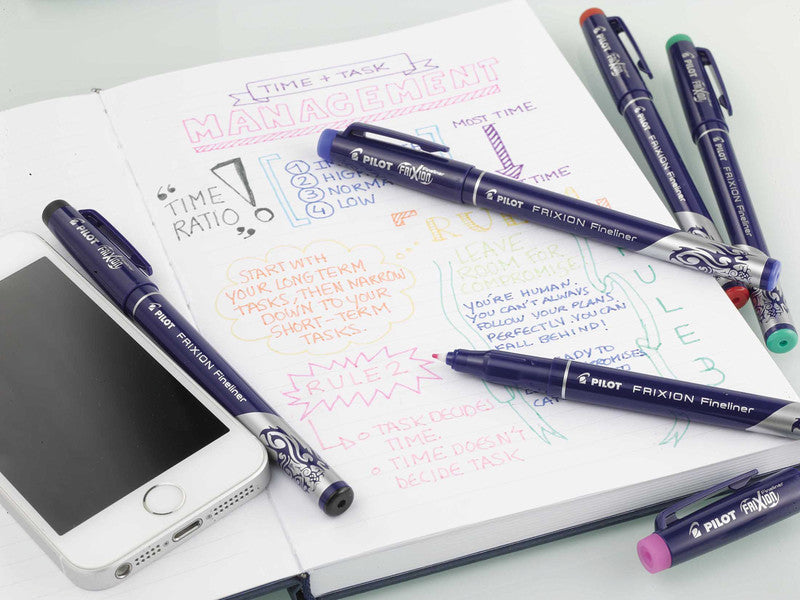 TIME + TASK
MANAGEMENT
"TIME
RATIO"
!
1
2 HIGH
3 NORMA
4 LOW
MOST TIME
TIME
START WITH
YOUR LONG TERM
TASKS, THEN NARROW
DOWN TO YOUR
SHORT-TERM
TASKS.
LEAVE
ROOM FOR
YOU'RE HUMAN.
YOU CAN'T ALWAYS
FOLLOW YOUR PLANS
PERFECTLY. YOU CAN
FALL BEHIND!
RULE 2
TASK DECIDES
TIME.
TIME DOESN'T
DECIDE TASK
RULE 3
PILOT FRIXION
PILOT FRIXION Fineliner
PILOT FRIXION
PILOT FRIXION Fineliner
PILOT FRIXION
PILOT FRIXION Fineliner
PILOT FRIXION
PILOT FRIXION Fineliner
PILOT FRIXION Fineliner
PILOT FRIXION Fineliner